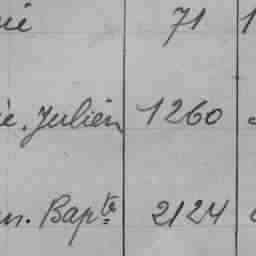 71
Julien 1260
Bapte 2124